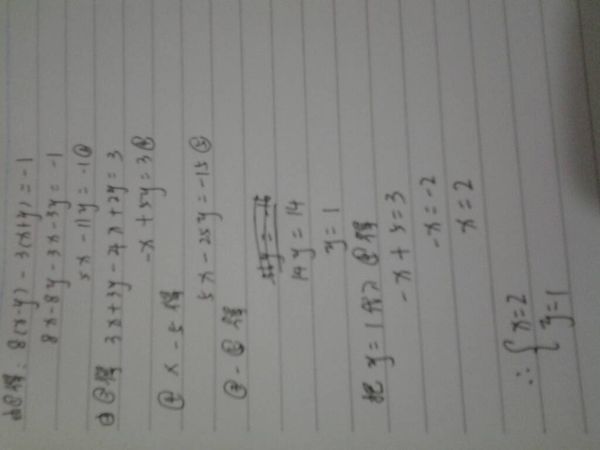 由①得：8(x-y)-3(x+y)=-1
8x-8y-3x-3y=-1
5x-11y=-1④
由②得 3x+3y-4x+2y=3
-x+5y=3②
②×-5得
5x-25y=-15⑤
④-⑤得
14y=14
y=1
把y=1代入②得
-x+5=3
-x=-2
x=2
∴{x=2
y=1